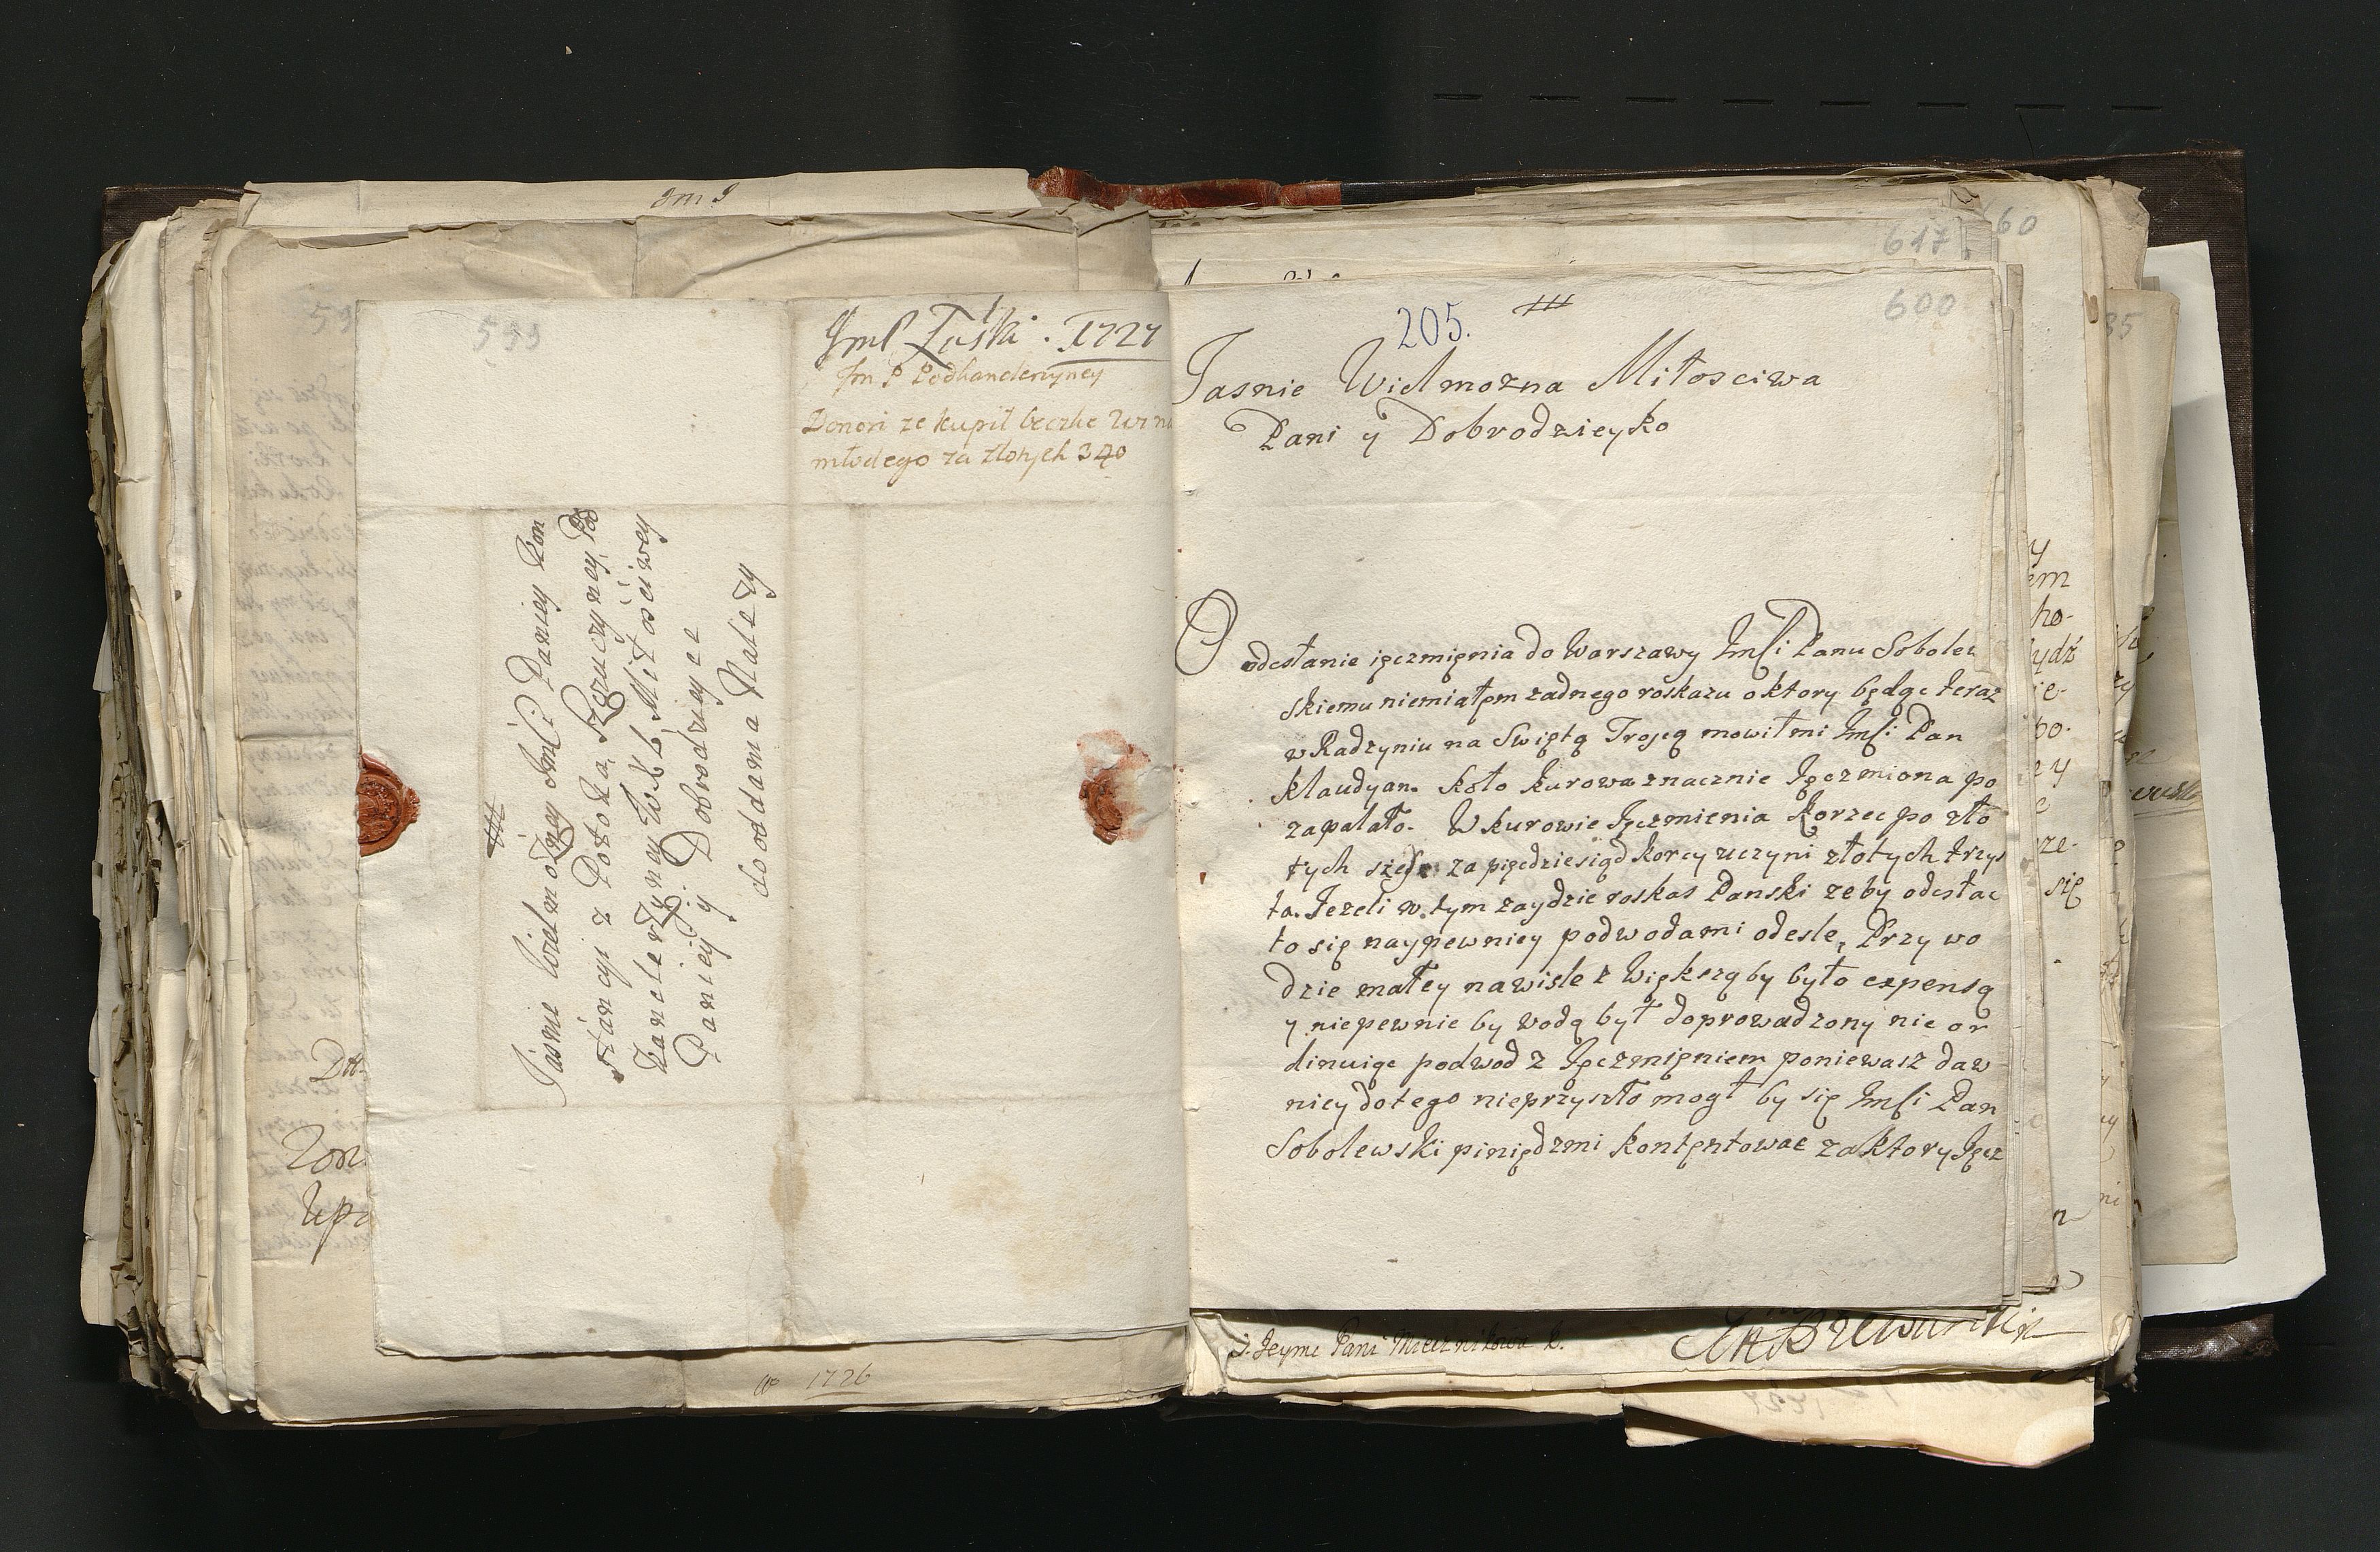 599
ImP Tuski . 1727
Jm P Podkancleryney
Donosi ze kupił beczke wina
młodego za złotych 340
Jasnie Wielmożney ImCi Paniey Kon
stancyi z Potoka Szczuczyney Pod
kanclerzyney W X L Miłosciwey
Paniey y Dobrodzieyce
do oddania Nalezy
1726
617
60
600
205.
Jasnie Wielmozna Miłosciwa
Pani y Dobrodzieyko
O odesłanie ięczmięnia do Warszawy ImCi Panu Sobolew
skiemu niemiałęm zadnego roskazu o ktory będąc teraz
w Radzyniu na Swiętą Troycą mowił mi ImCi Pan
klaudyan. Koło kurowa znacznie Ięczmiona po
zapalało. W kurowie Ięczmienia korzec po zło
tych szesc za pięcdziesiąd korcy uczyni złotych trzys
ta. Jezeli w tym zaydzie roskas Panski zeby odesłac
to się naypewniey podwodami odesle, Przy wo
dzie małey na wisle z Większą by było expensą
y niepewnie by wodą był doprowadzony nie or
dinuiąc podwod z Ięczmięniem poniewasz daw
niey do tego nieprzyszło mogł by się ImCi Pan
Sobolewski piniędzmi kontęntowac za ktory Ięcz